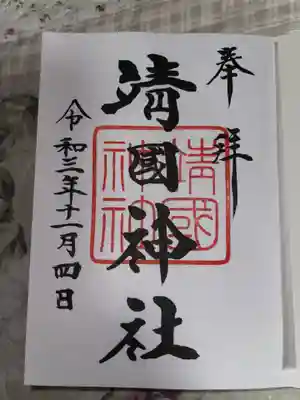 奉拝
靖國神社
靖國
神社
令和三年十一月四日